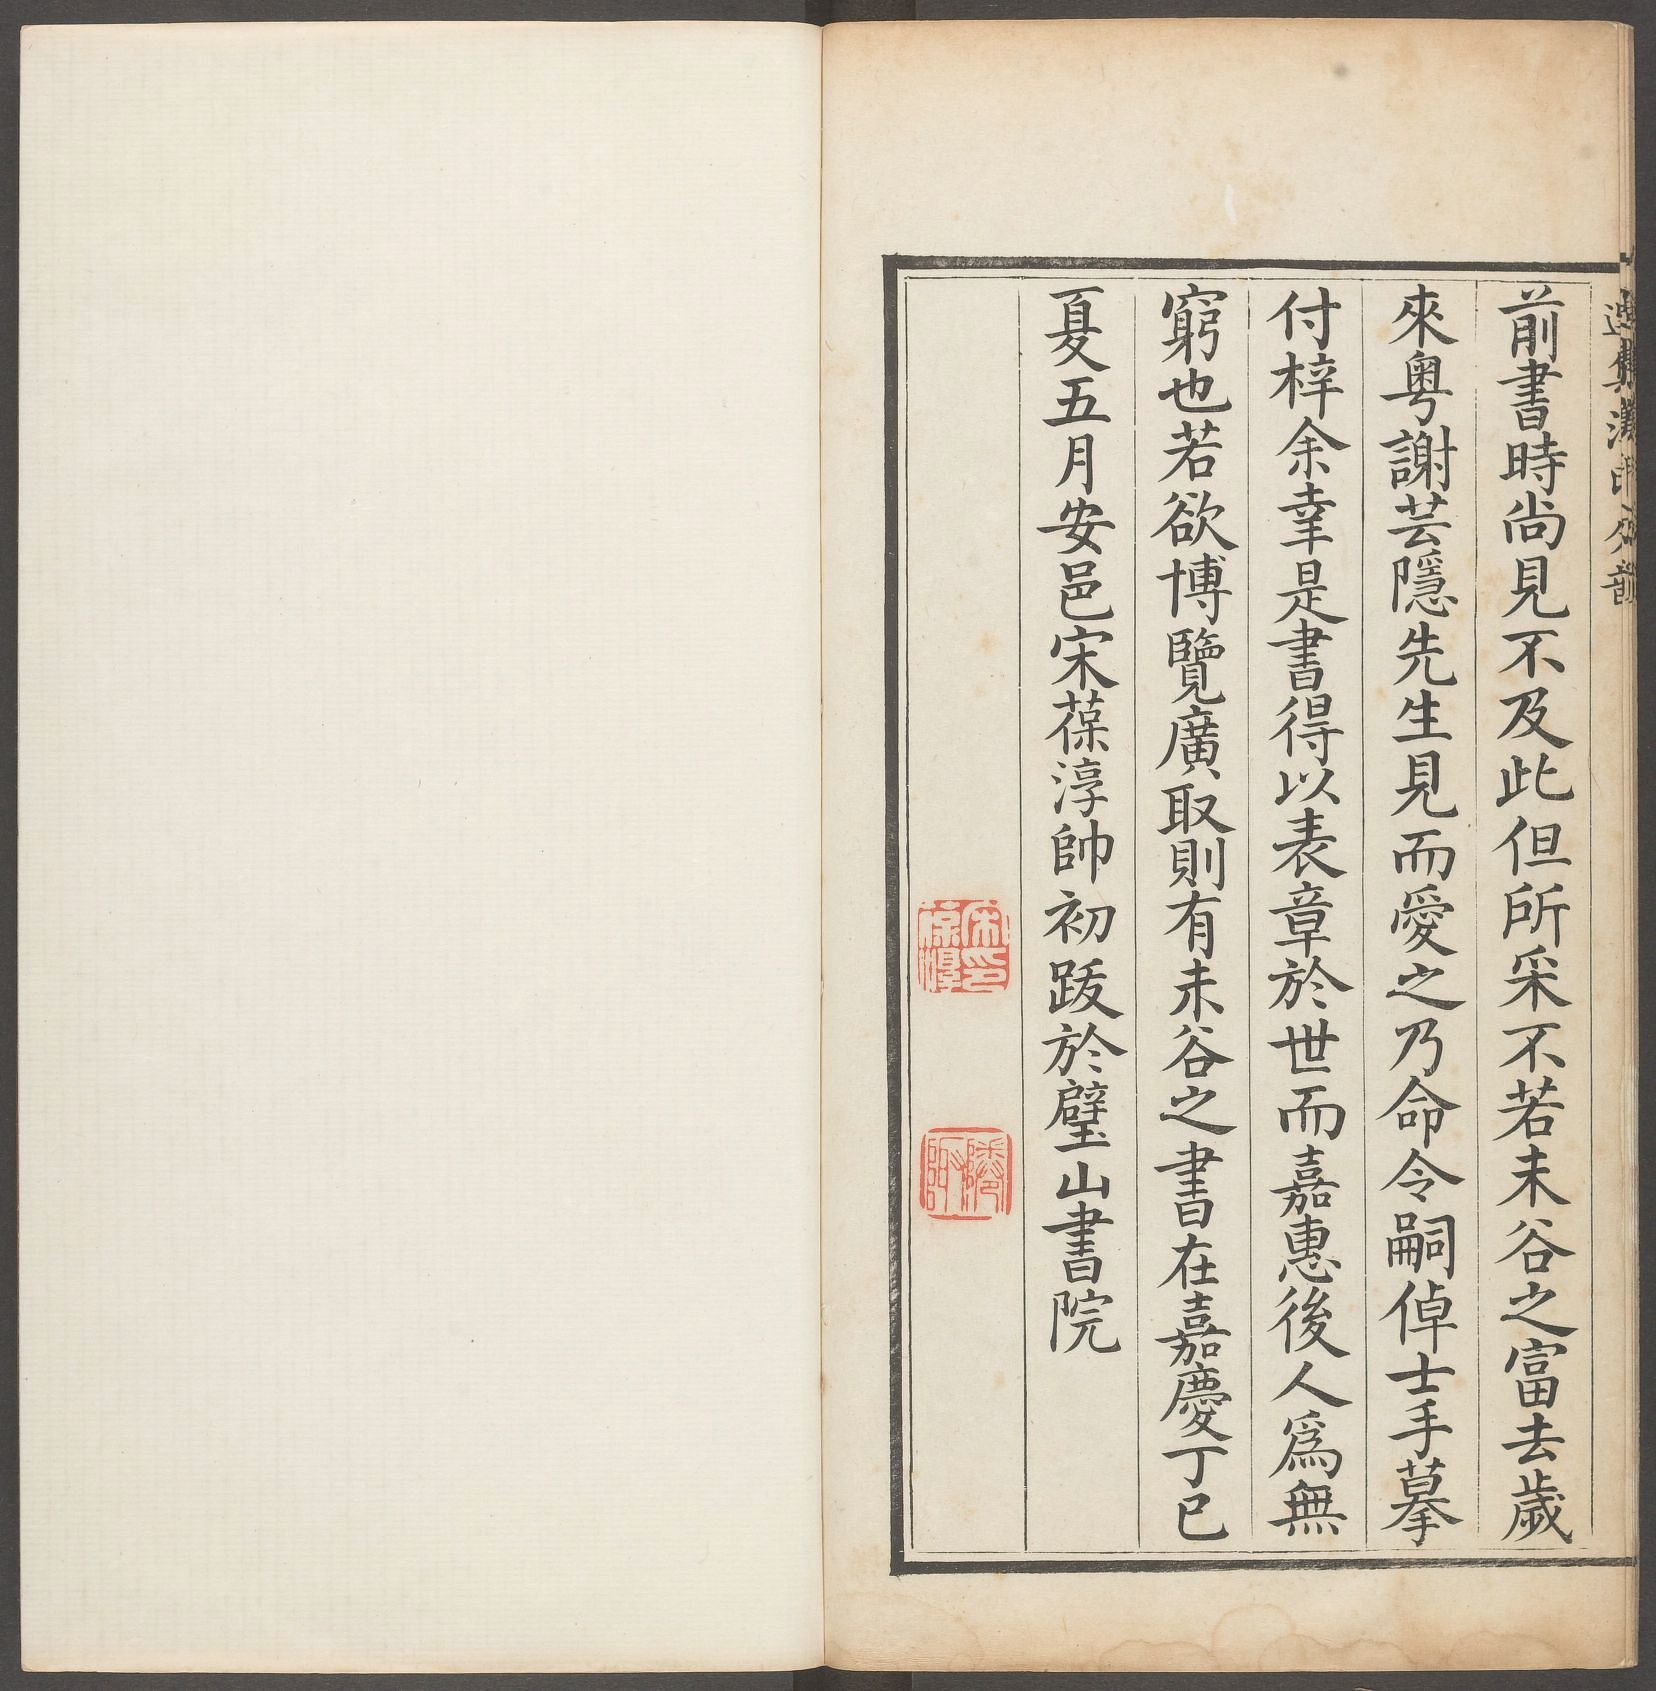 前書時尚見不及此但所采不若未谷之富去歲
來粵謝芸隱先生見而愛之乃命令嗣倬士手摹
付梓余幸是書得以表章於世而嘉惠後人爲無
窮也若欲博覽廣取則有未谷之書在嘉慶丁巳
夏五月安邑宋葆淳帥初跋於璧山書院
宋印葆淳